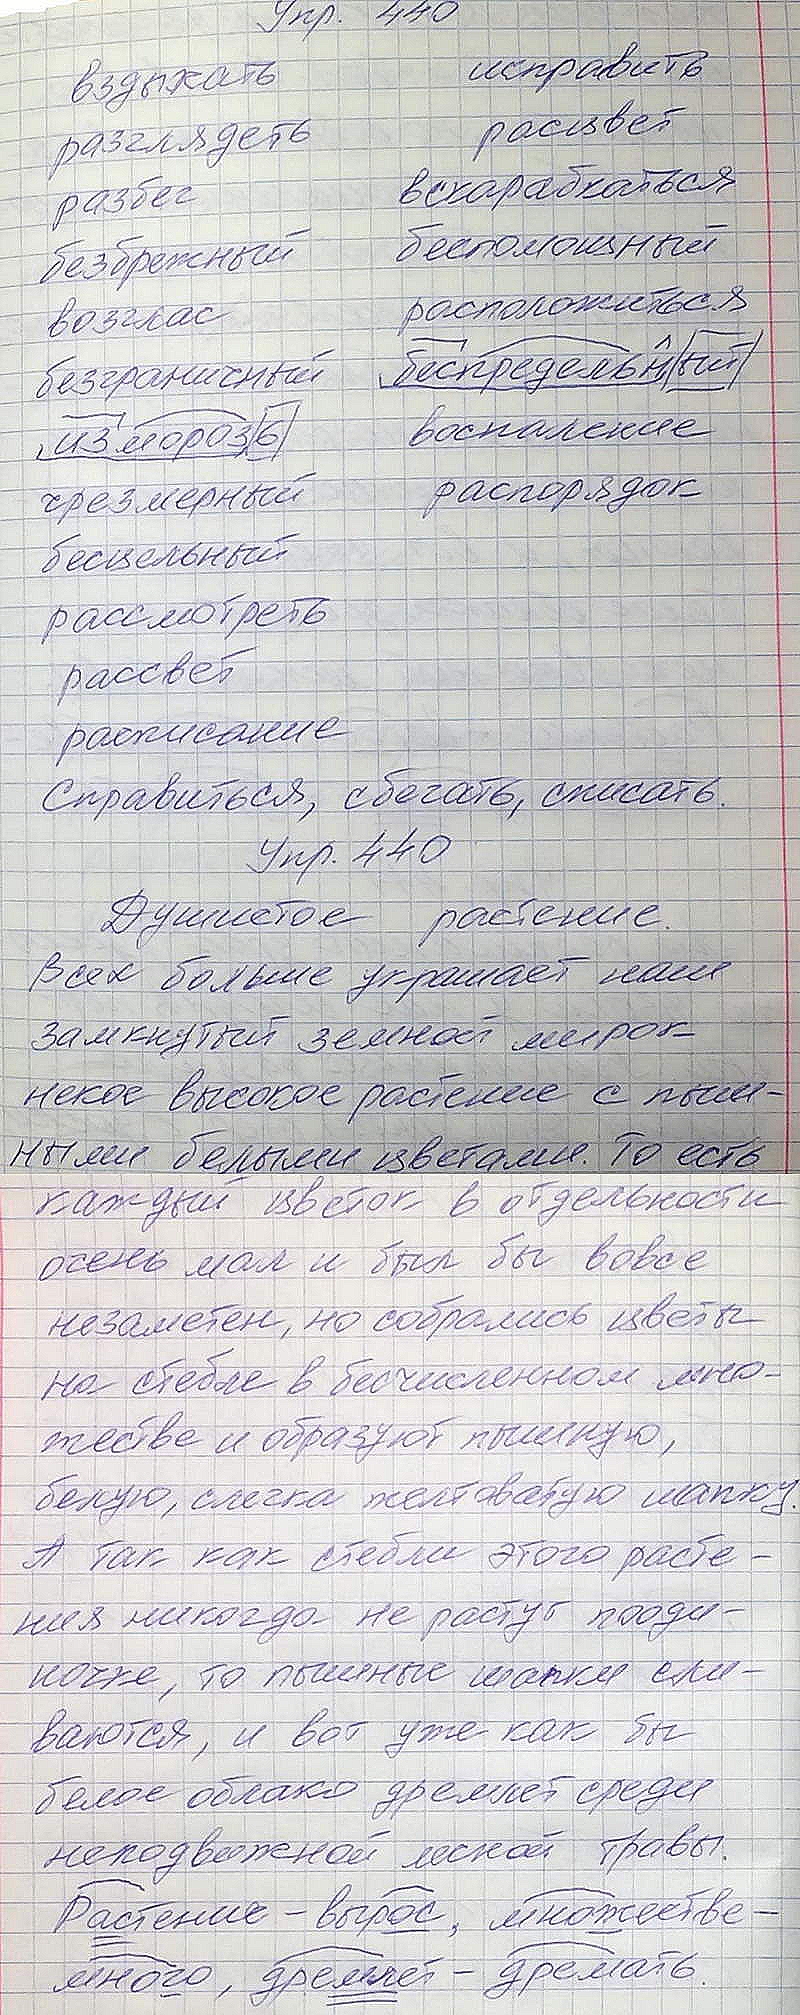 Упр. 440
вздыхать исправить
разглядеть расцвет
разбег вскарабкаться
безбрежный беспомощный
возглас расположиться
безграничный беспредельный
изморозь воспаление
чрезмерный распорядок
бесцельный
рассмотреть
рассвет
расписание
Справиться, сбегать, списать.
Упр. 440
Душистое растение.
Всех больше украшает наш
замкнутый земной мирок
некое высокое растение с пыш-
ными белыми цветами. То есть
каждый цветок в отдельности
очень мал и был бы вовсе
незаметен, но собрались цветы
на стебле в бесчисленном мно-
жестве и образуют пышную,
белую, слегка желтоватую шапку.
А так как стебли этого расте-
ния никогда не растут пооди-
ночке, то пышные шапки сли-
ваются, и вот уже как бы
белое облако дремлет среди
неподвижной лесной травы.
Растение - вырос, множестве -
много, дремлет - дремать.